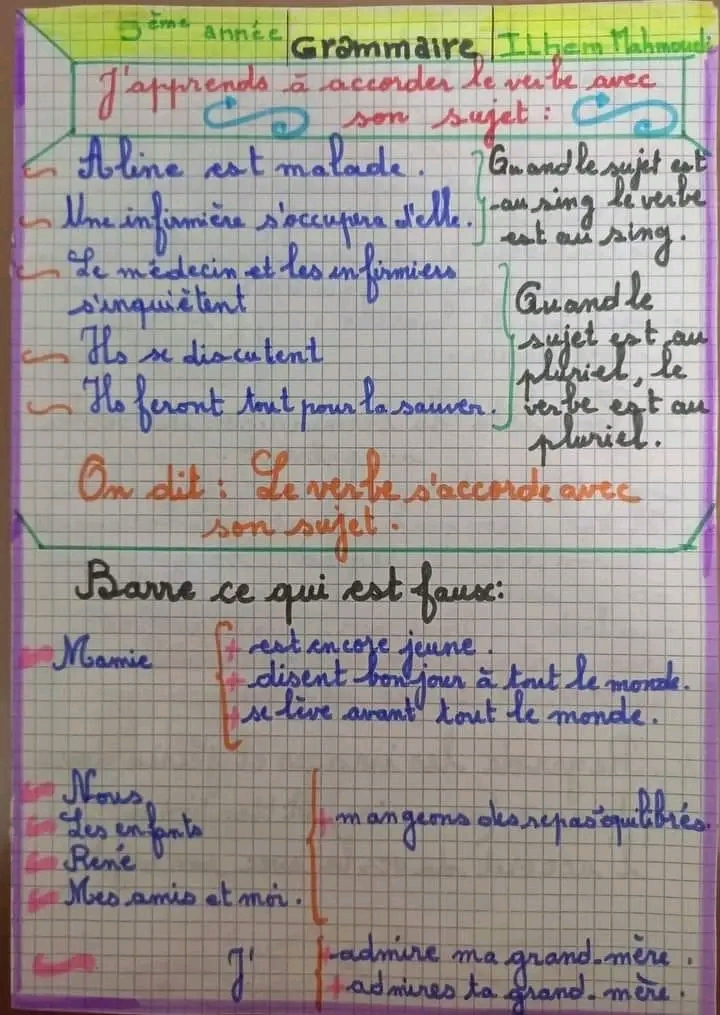 5ème année Grammaire Ilhem Mahmoudi
J'apprends à accorder le verbe avec
son sujet :
Aline est malade.
Une infirmière s'occupera d'elle.
Quand le sujet est
au sing le verbe
est au sing.
Le médecin et les infirmiers
s'inquiètent
Ils se discutent
Ils feront tout pour la sauver.
Quand le
sujet est au
pluriel, le
verbe est au
pluriel.
On dit : Le verbe s'accorde avec
son sujet.
Barre ce qui est faux:
Mamie
+ est encore jeune.
+ disent bonjour à tout le monde.
+ se lève avant tout le monde.
Nous
Les enfants
René
Mes amis et moi.
+ mangeons des repas équilibrés.
J'
+ admire ma grand-mère.
+ admires ta grand-mère.